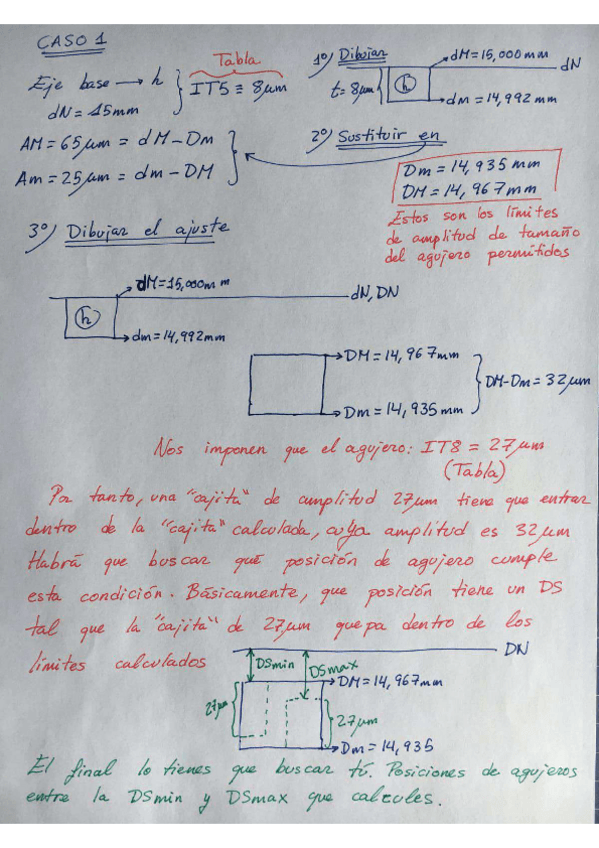 CASO 1
Eje base → h
dN = 15mm
Tabla
IT5 ≡ 8µm
AM = 65µm = dM - Dm
Am = 25µm = dm - DM
1º) Dibujar
t = 8µm
h
dM = 15,000 mm
dN
dm = 14,992 mm
2º) Sustituir en
Dm = 14,935 mm
DM = 14,967 mm
Estos son los límites
de amplitud de tamaño
del agujero permitidos
3º) Dibujar el ajuste
dM = 15,000 mm
dN, DN
h
dm = 14,992 mm
DM = 14,967 mm
DM - Dm = 32µm
Dm = 14,935 mm
Nos imponen que el agujero: IT8 = 27µm
(Tabla)
Por tanto, una "cajita" de amplitud 27µm tiene que entrar
dentro de la "cajita" calculada, cuya amplitud es 32µm
Habrá que buscar qué posición de agujero cumple
esta condición. Básicamente, que posición tiene un DS
tal que la "cajita" de 27µm quepa dentro de los
límites calculados
DN
DSmin
DSmax
DM = 14,967mm
27µm
27µm
Dm = 14,935
El final lo tienes que buscar tú. Posiciones de agujeros
entre la DSmin y DSmax que calcules.